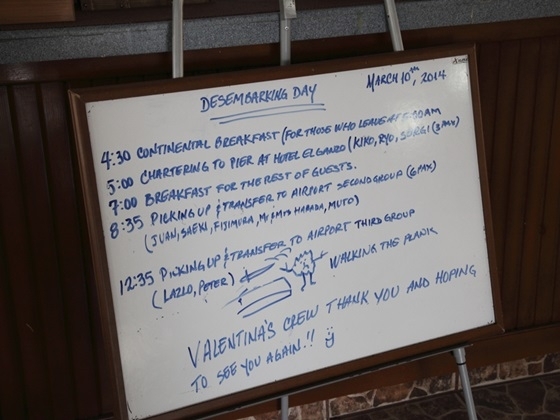 DESEMBARKING DAY
MARCH 10TH, 2014
4:30 CONTINENTAL BREAKFAST (FOR THOSE WHO LEAVE AT 5:30AM
5:00 CHARTERING TO PIER AT HOTEL EL GANZO (KIKO, RYO, SERGI (3 PAX)
7:00 BREAKFAST FOR THE REST OF GUESTS.
8:35 PICKING UP & TRANSFER TO AIRPORT SECOND GROUP (6 PAX)
(JUAN, SAEKI, FIJIMURA, Mr & Mrs HARADA, MUTO)
12:35 PICKING UP & TRANSFER TO AIRPORT THIRD GROUP
(LAZLO, PETER)
WALKING THE PLANK
VALENTINA'S CREW THANK YOU AND HOPING
TO SEE YOU AGAIN!!